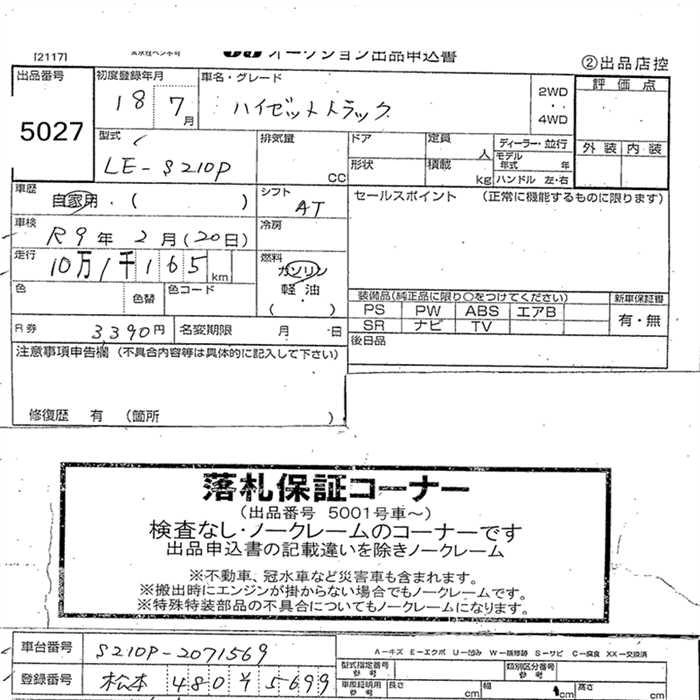 [2117]
オークション出品申込書
②出品店控
出品番号 初度登録年月 車名・グレード
2WD
・・
4WD
評価点
5027
18 7月
ハイゼットトラック
型式 排気量 ドア 定員 ディーラー・並行
人 モデル年式 年
外装 内装
LE-S210P
CC
形状 積載 kg ハンドル 左・右
車歴 自家用・( )
シフト AT
セールスポイント (正常に機能するものに限ります)
車検 R9年 2月(20日)
冷房
走行 10万1千165km
燃料 ガソリン
軽油
( )
色 色替 色コード
装備品(純正品に限り○をつけてください) 新車保証書
PS PW ABS エアB 有・無
SR ナビ TV
R券 3,390円 名変期限 月 日
後日品
注意事項申告欄(不具合内容等は具体的に記入して下さい)
修復歴 有 (箇所 )
落札保証コーナー
(出品番号 5001号車~)
検査なし・ノークレームのコーナーです
出品申込書の記載違いを除きノークレーム
※不動車、冠水車など災害車も含まれます。
※搬出時にエンジンが掛からない場合でもノークレームです。
※特殊特装部品の不具合についてもノークレームになります。
車台番号 S210P-2071569
A-キズ E-エクボ U-凹み W-板修跡 S-サビ C-腐食 XX-交換済
型式指定番号 参考 類別区分番号 参考
登録番号 松本 480 5699
車庫証明用 参考 長さ cm 幅 cm 高さ cm